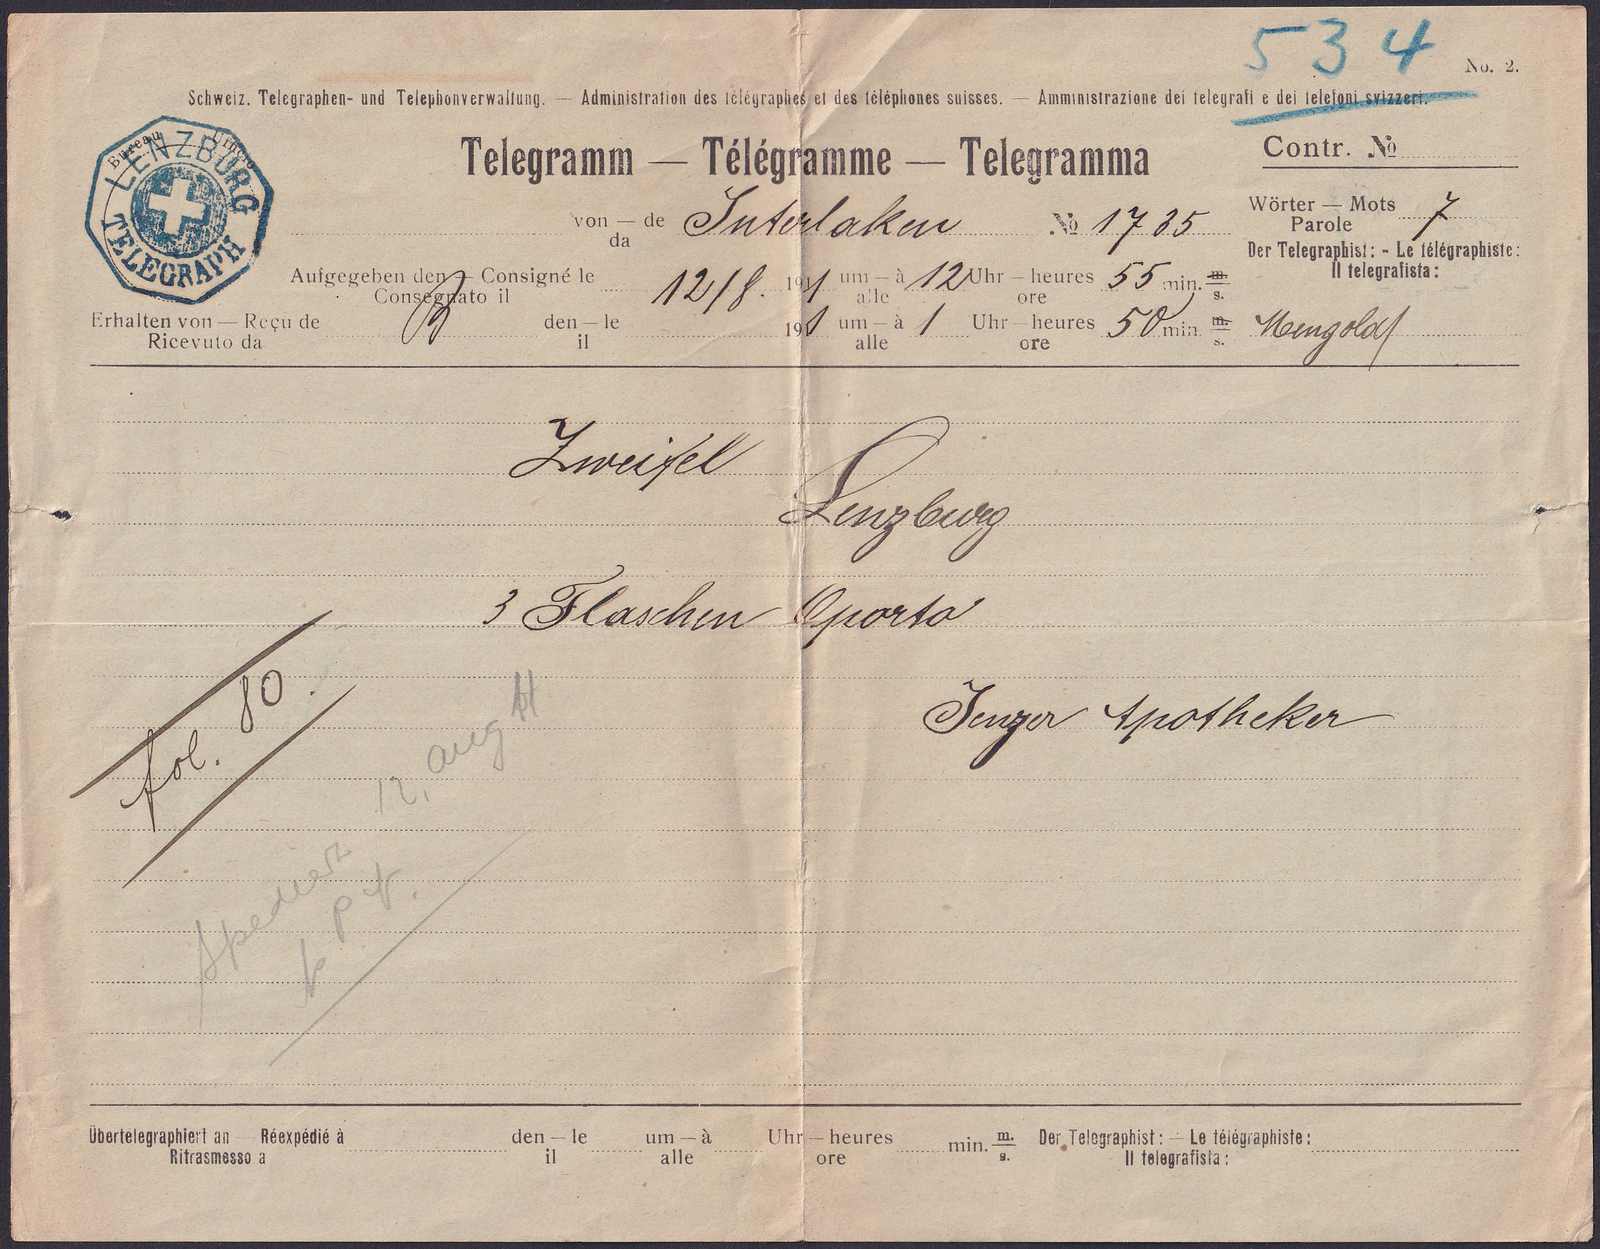 534
No. 2.
Schweiz. Telegraphen- und Telephonverwaltung. — Administration des télégraphes et des téléphones suisses. — Amministrazione dei telegrafi e dei telefoni svizzeri.
Bureau
LENZBURG
TELEGRAPH
Telegramm — Télégramme — Telegramma
Contr. No
von — de Interlaken No 1735
da
Wörter — Mots 7
Parole
Der Telegraphist: - Le télégraphiste:
Il telegrafista:
Aufgegeben den — Consigné le 12/8. 1911 um — à 12 Uhr — heures 55 min. m.
Consegnato il alle ore s.
Erhalten von — Reçu de den — le 191 um — à 1 Uhr — heures 50 min. m. Mengold
Ricevuto da il alle ore s.
Zweifel
Lenzburg
3 Flaschen Oporto
Jenzer Apotheker
fol. 80.
12, Aug 11
Spediert
p. pt.
Übertelegraphiert an — Réexpédié à den — le um — à Uhr — heures min. m. Der Telegraphist: — Le télégraphiste:
Ritrasmesso a il alle ore s. Il telegrafista: